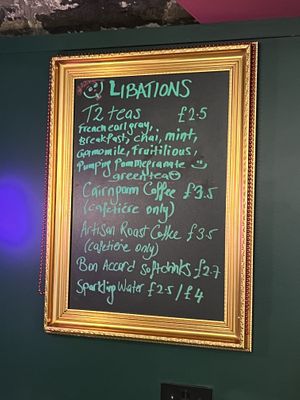 LIBATIONS
T2 teas £2.5
French earl gray,
Breakfast, chai, mint,
Gamomile, fruitilious,
Pumping Pommegranate
green tea
Cairngorm Coffee £3.5
(cafetière only)
Artisan Roast Coffee £3.5
(cafetière only)
Bon Accord Soft drinks £2.7
Sparkling Water £2.5/£4